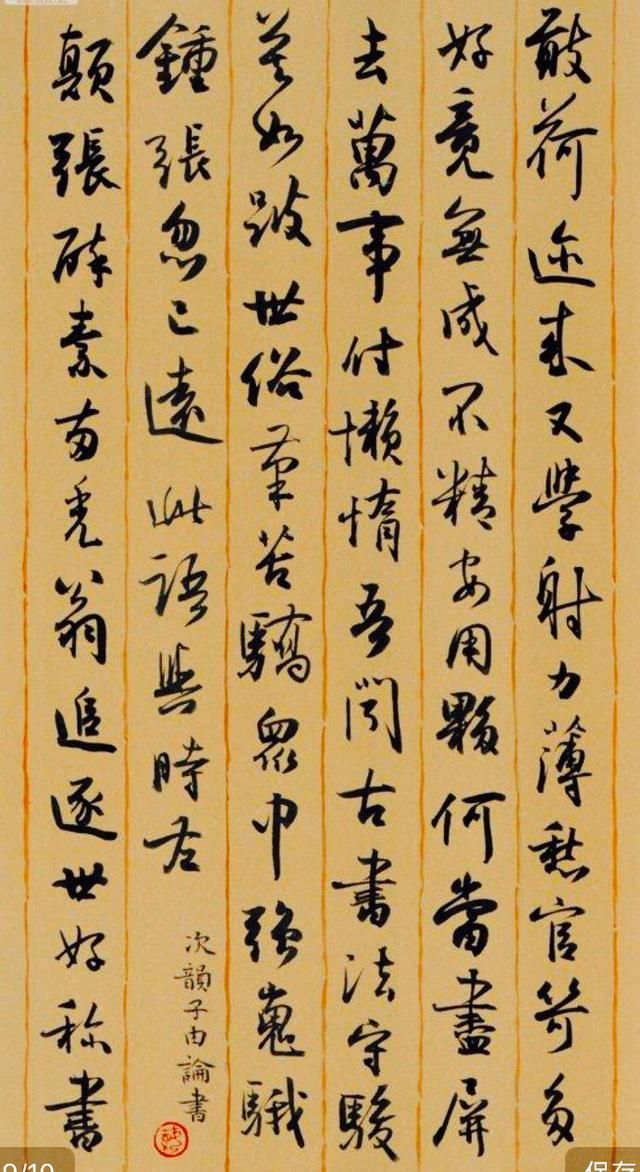 敢荷迩来又學射力薄愁官笴多
好竟無成不精安用夥何當盡屏
去萬事付懶惰吾聞古書法守駿
莫如跛世俗筆苦驕衆中強嵬騀
鍾張忽已遠此語與時左
次韻子由論書
顛張醉素兩禿翁追逐世好称書
9/10
保存